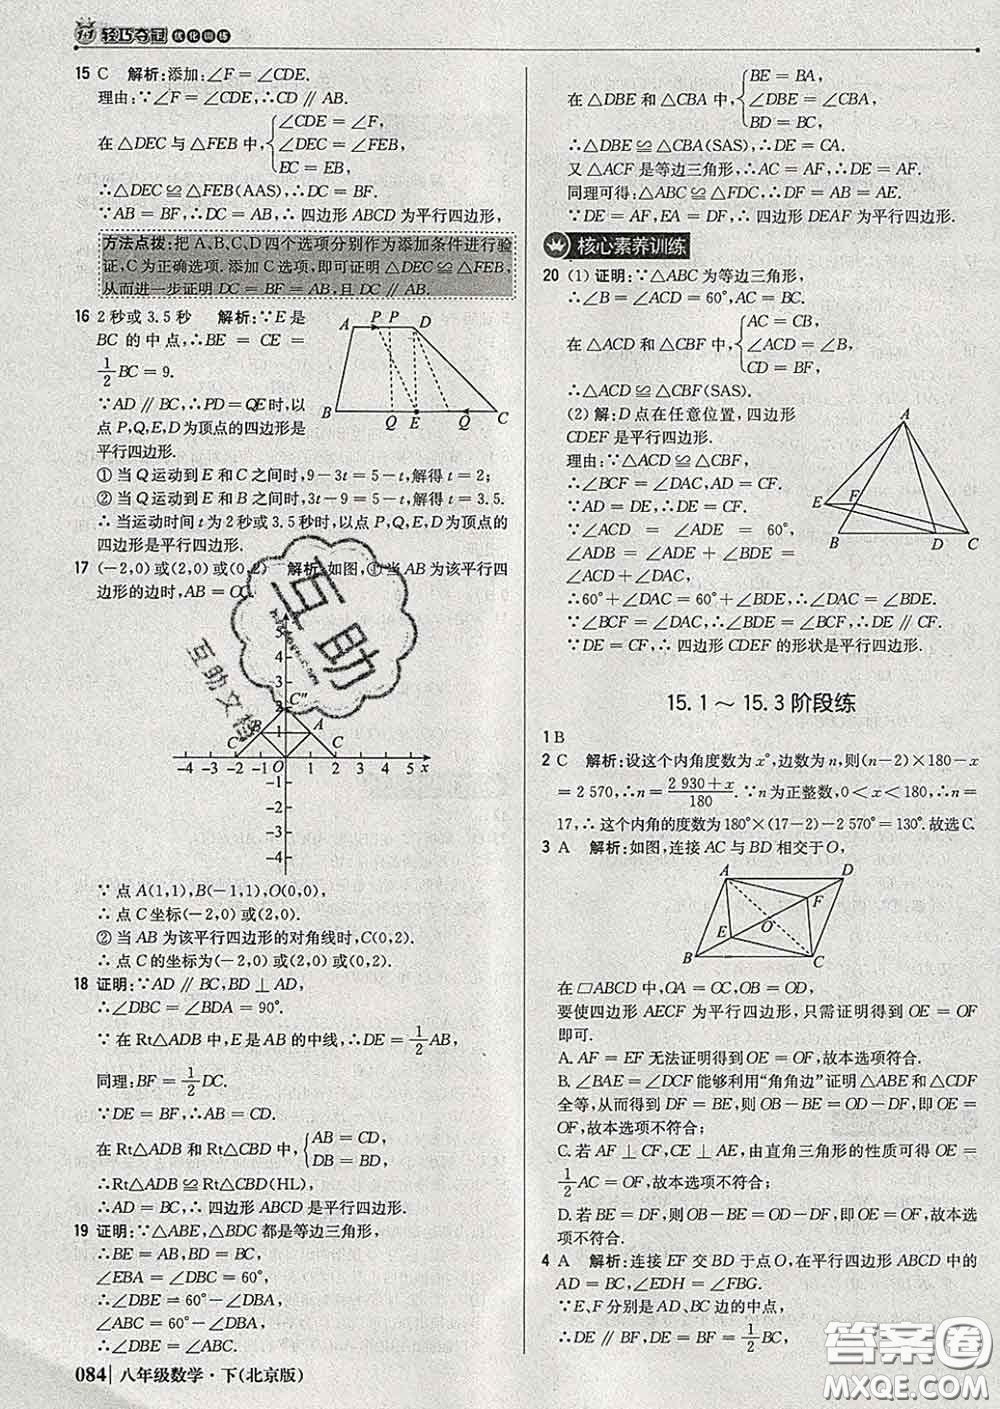 1+1 轻巧夺冠 优化训练
15 C 解析:添加:∠F=∠CDE.
理由:∵∠F=∠CDE,∴CD∥AB.
在△DEC与△FEB中,{∠CDE=∠F,
∠DEC=∠FEB,
EC=EB,
∴△DEC≌△FEB(AAS),∴DC=BF.
∵AB=BF,∴DC=AB,∴四边形ABCD为平行四边形,
方法点拨:把A、B、C、D四个选项分别作为添加条件进行验
证,C为正确选项.添加C选项,即可证明△DEC≌△FEB,
从而进一步证明DC=BF=AB,且DC∥AB.
16 2秒或3.5秒 解析:∵E是
BC的中点,∴BE=CE=
1/2BC=9.
∵AD∥BC,∴PD=QE时,以
点P,Q,E,D为顶点的四边形是
平行四边形.
A P P D
B Q E Q C
①当Q运动到E和C之间时,9-3t=5-t,解得t=2;
②当Q运动到E和B之间时,3t-9=5-t,解得t=3.5.
∴当运动时间t为2秒或3.5秒时,以点P,Q,E,D为顶点的
四边形是平行四边形.
17 (-2,0)或(2,0)或(0,2) 解析:如图,①当AB为该平行四
边形的边时,AB=OC.
5
4
3
2 C″
B 1 A
C′ C
-4 -3 -2 -1 O 1 2 3 4 5 x
-1
-2
-3
-4
∵点A(1,1),B(-1,1),O(0,0),
∴点C坐标(-2,0)或(2,0).
②当AB为该平行四边形的对角线时,C(0,2).
∴点C的坐标为(-2,0)或(2,0)或(0,2).
18 证明:∵AD∥BC,BD⊥AD,
∴∠DBC=∠BDA=90°.
∵在Rt△ADB中,E是AB的中线,∴DE=1/2AB,
同理:BF=1/2DC.
∵DE=BF,∴AB=CD.
在Rt△ADB和Rt△CBD中,{AB=CD,
DB=BD,
∴Rt△ADB≌Rt△CBD(HL),
∴AD=BC,∴四边形ABCD是平行四边形.
19 证明:∵△ABE,△BDC都是等边三角形,
∴BE=AB,BD=BC,
∠EBA=∠DBC=60°,
∴∠DBE=60°-∠DBA,
∠ABC=60°-∠DBA,
∴∠DBE=∠ABC.
084 八年级数学·下(北京版)
在△DBE和△CBA中,{BE=BA,
∠DBE=∠CBA,
BD=BC,
∴△DBE≌△CBA(SAS),∴DE=CA.
又△ACF是等边三角形,∴AC=AF,∴DE=AF.
同理可得:△ABC≌△FDC,∴DF=AB=AE.
∵DE=AF,EA=DF,∴四边形DEAF为平行四边形.
核心素养训练
20 (1)证明:∵△ABC为等边三角形,
∴∠B=∠ACD=60°,AC=BC.
在△ACD和△CBF中,{AC=CB,
∠ACD=∠B,
CD=BF,
∴△ACD≌△CBF(SAS).
(2)解:D点在任意位置,四边形
CDEF是平行四边形.
理由:∵△ACD≌△CBF,
∴∠BCF=∠DAC,AD=CF.
∵AD=DE,∴DE=CF.
∵∠ACD=∠ADE=60°,
∠ADB=∠ADE+∠BDE=
∠ACD+∠DAC,
A
E F
B D C
∴60°+∠DAC=60°+∠BDE,∴∠DAC=∠BDE.
∵∠BCF=∠DAC,∴∠BDE=∠BCF,∴DE∥CF.
∵DE=CF,∴四边形CDEF的形状是平行四边形.
15.1～15.3阶段练
1 B
2 C 解析:设这个内角度数为x°,边数为n,则(n-2)×180-x
=2 570,∴n=(2 930+x)/180.∵n为正整数,0<x<180,∴n=
17,∴这个内角的度数为180°×(17-2)-2 570°=130°.故选C.
3 A 解析:如图,连接AC与BD相交于O,
A D
F
E O
B C
在▱ABCD中,OA=OC,OB=OD,
要使四边形AECF为平行四边形,只需证明得到OE=OF
即可.
A.AF=EF无法证明得到OE=OF,故本选项符合.
B.∠BAE=∠DCF能够利用“角角边”证明△ABE和△CDF
全等,从而得到DF=BE,则OB-BE=OD-DF,即OE=
OF,故本选项不符合;
C.若AF⊥CF,CE⊥AE,由直角三角形的性质可得OE=
1/2AC=OF,故本选项不符合;
D.若BE=DF,则OB-BE=OD-DF,即OE=OF,故本选
项不符合.
4 A 解析:连接EF交BD于点O,在平行四边形ABCD中的
AD=BC,∠EDH=∠FBG.
∵E,F分别是AD、BC边的中点,
∴DE∥BF,DE=BF=1/2BC,
互助
互助文档
答案圈
MXQE.COM